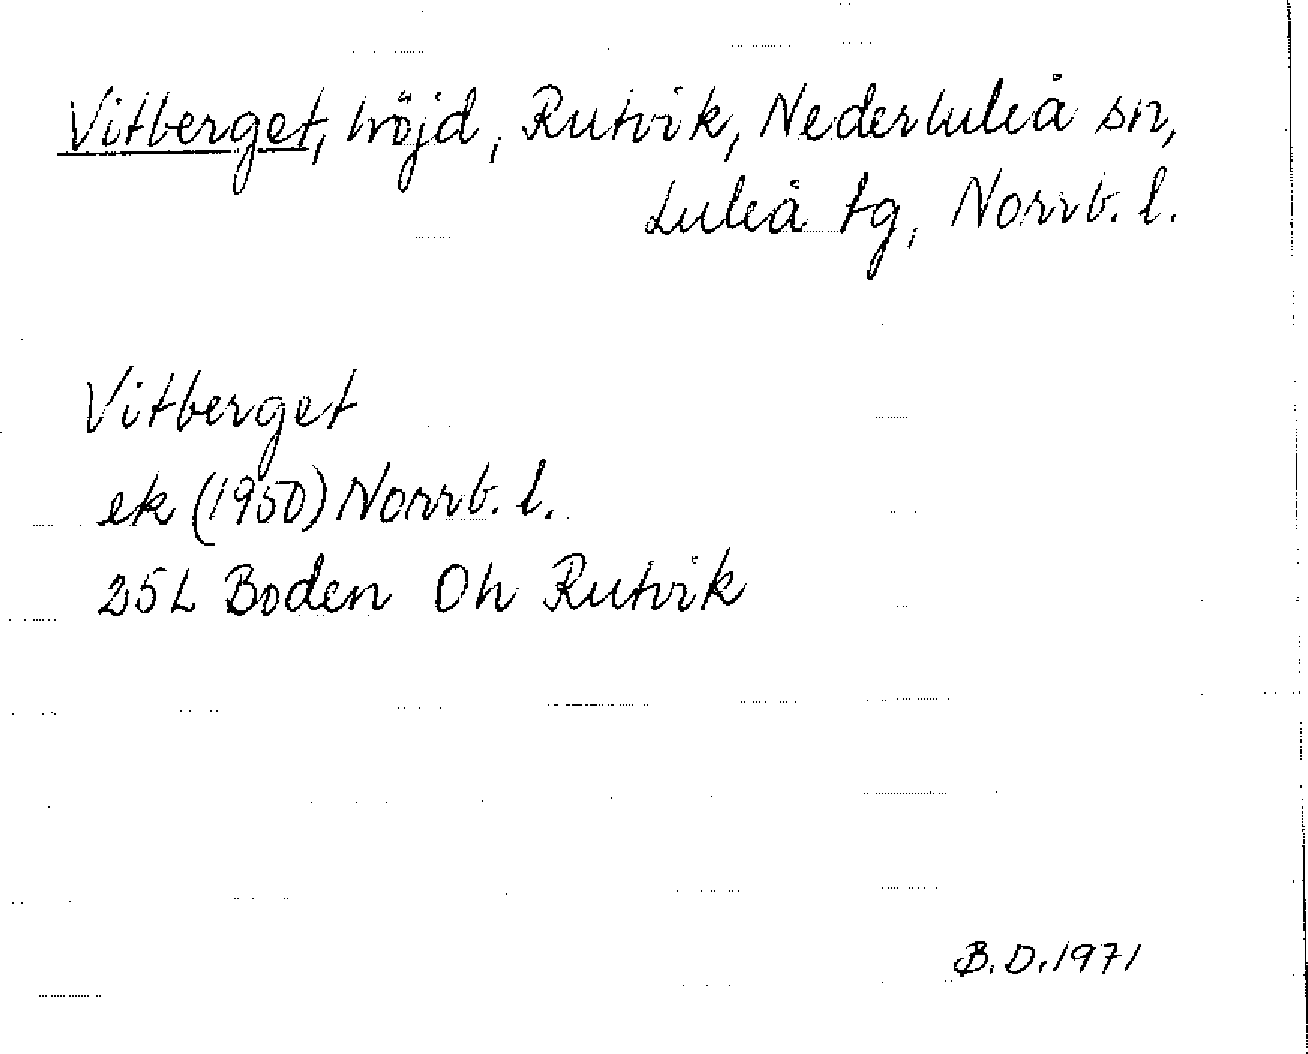 Vitberget, höjd, Rutvik, Nederluleå sn,
Luleå tg, Norrb. l.
Vitberget
ek (1950) Norrb. l.
25L Boden Oh Rutvik
B.D. 1971